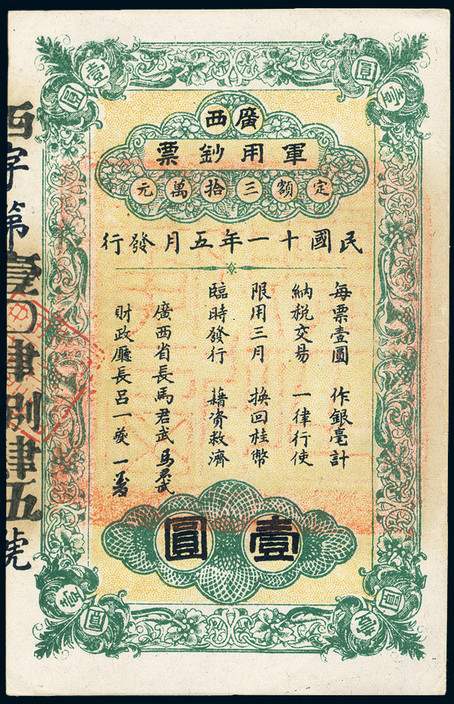 廣西
軍用鈔票
定額三拾萬元
民國十一年五月發行
每票壹圓 作銀毫計
納稅交易 一律行使
限用三月 換回桂幣
臨時發行 藉資救濟
廣西省長馬君武 馬君武
財政廳長呂一夔 一夔
壹圓
西字第壹〇肆捌肆五號
壹圓
壹圓
壹圓
壹圓